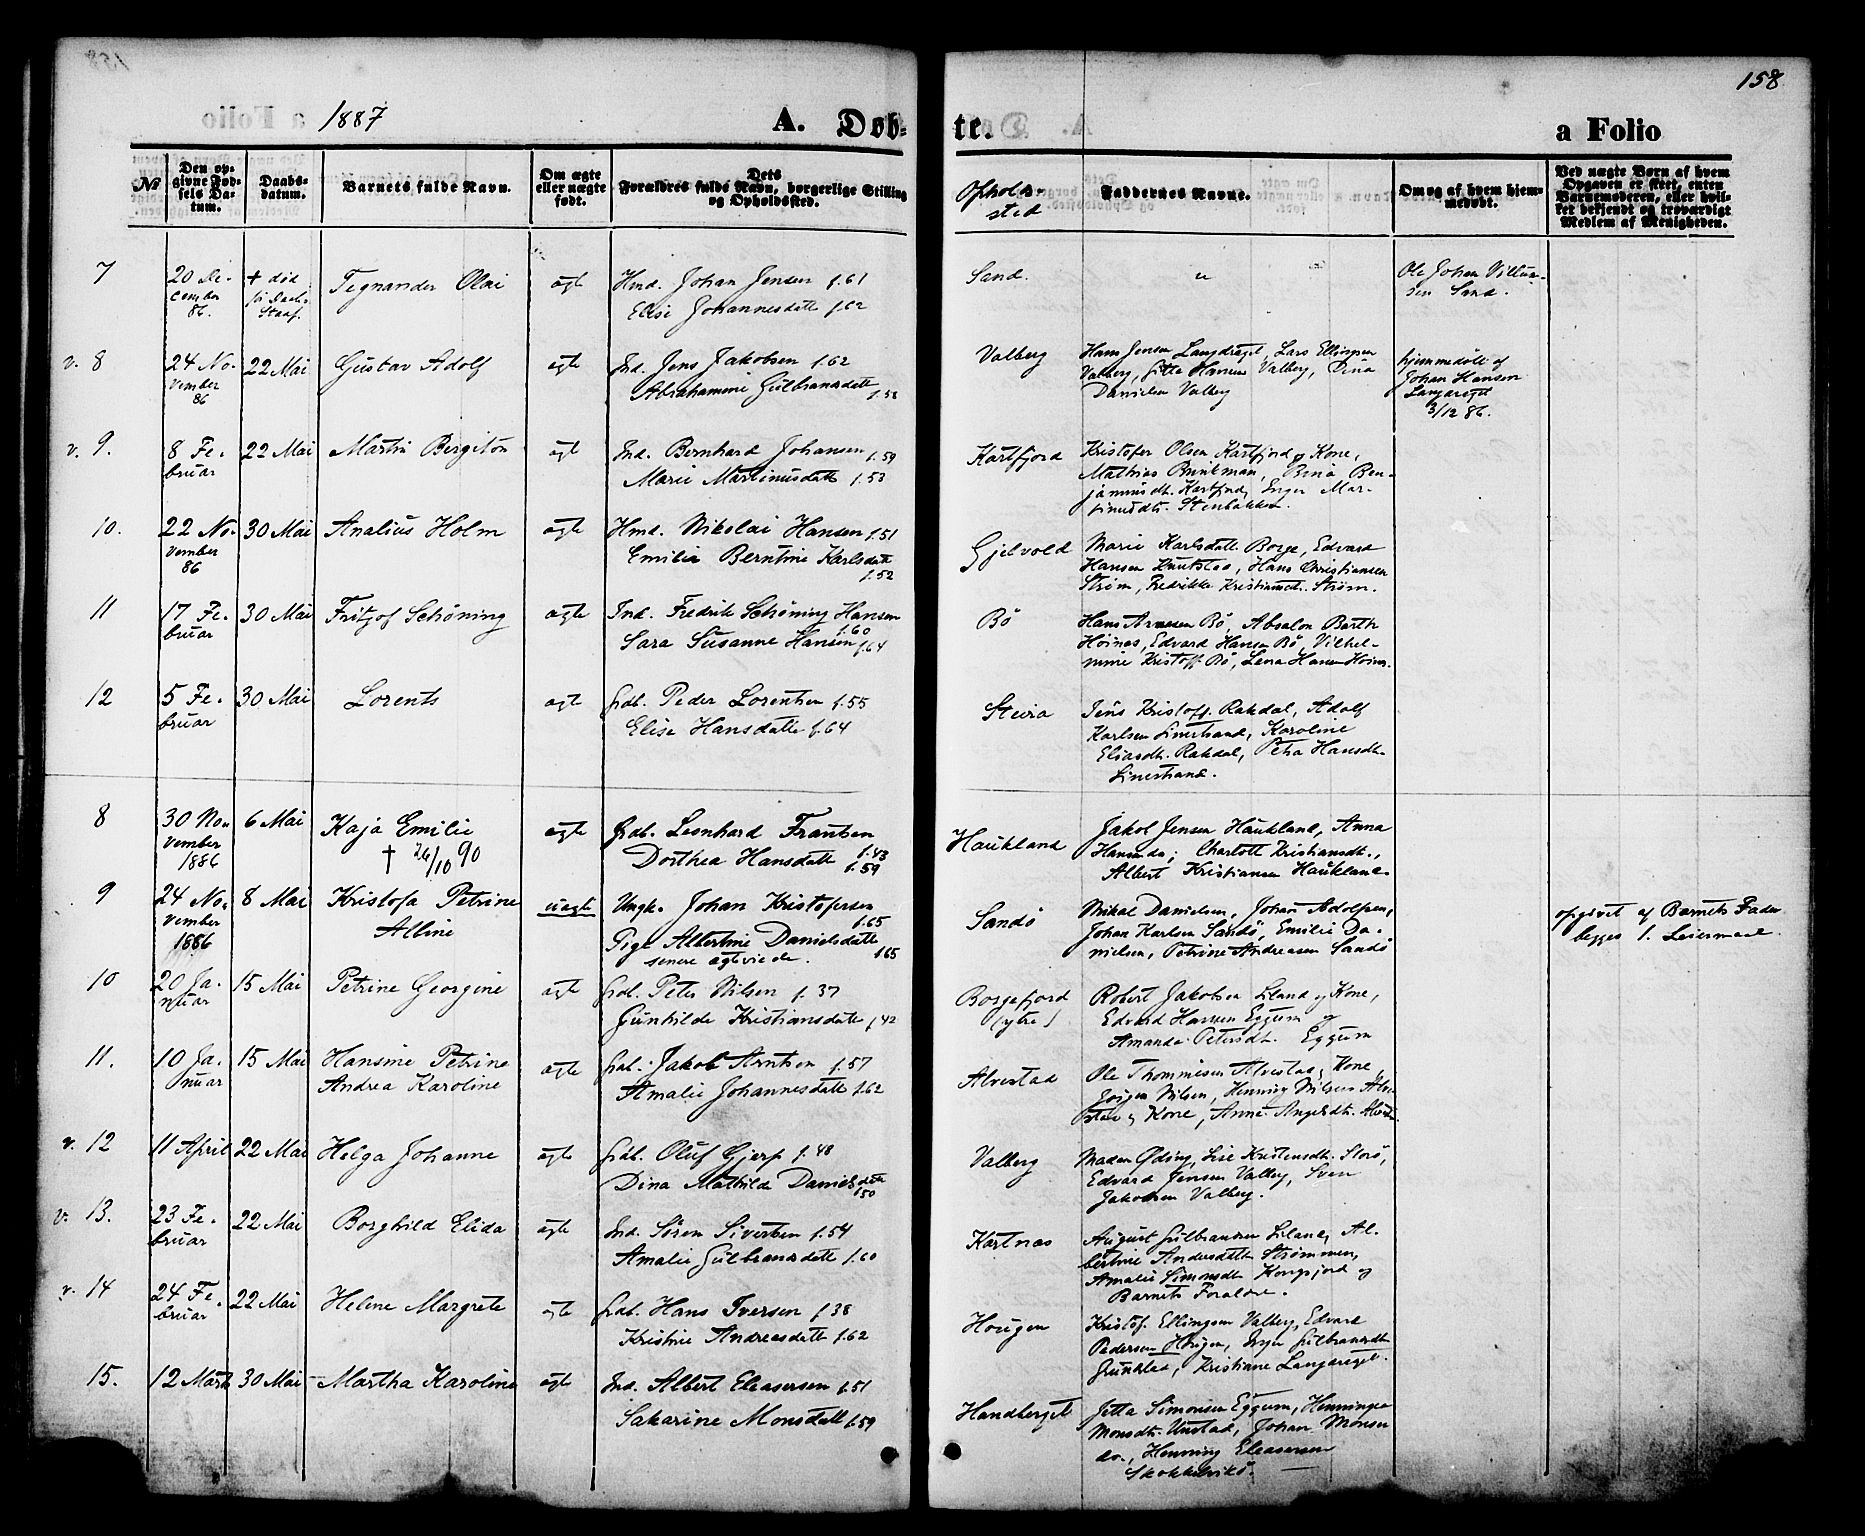 158
1887
A. Døb-
te.
a Folio
No
Den op-
givne Fød-
sels Da-
tum.
Daabs-
datum.
Barnets fulde Navn.
Om ægte
eller uægte
født.
Dets
Forældres fulde Navn, borgerlige Stilling
og Opholdssted.
Opholds-
sted
Faddernes Navne.
Om og af hvem hjem-
medøbt.
Ved uægte Børn af hvem
Opgaven er skeet, enten
Barnemoderen, eller hvil-
ket bekjendt og troværdigt
Medlem af Menigheden.
7
20 De-
cember
86.
+ død
før Daab.
Stadf.
Tegnander Olai
ægte
Hmd. Johan Jensen f.61
Elise Johannesdatt f.62
Sand.
"
Ole Johan Villum-
sen Sand.
v. 8
24 No-
vember
86
22 Mai
Gustav Adolf
ægte
Ind. Jens Jakobsen f.62
Abrahamine Gulbransdatt
f.58
Valberg
Hans Jensen Langdraget, Lars Ellingsen
Valberg, Jitta Hansen Valberg, Dina
Danielsen Valberg
hjemmedøbt af
Johan Hansen
3/12 86.
v. 9.
8 Fe-
bruar
22 Mai
Martin Bergiton
ægte
Ind. Bernhard Johansen f.59
Marie Martinusdatt f.53
Kartfjord
Kristofer Olsen Kartfjord og Kone,
Mathias Brinkman, Bina Ben-
jaminsdt. Kartfjord, Inger Mar-
tinusdt. Stenbakken.
10.
22 No-
vember
86
30 Mai
Analius Holm
ægte
Hmd. Nikolai Hansen f.51
Emilia Berntine Karlsdatt
f.52
Gjelvold
Marie Karlsdatt. Borge, Edvard
Hansen Knutstad, Hans Christiansen
Strøm, Fredrikke Kristiansdt. Strøm.
11
17 Fe-
bruar
30 Mai
Fritjof Schøning
ægte
Ind. Fredrik Schøning Hansen
f.60
Sara Susanne Hansen f.64
Bø
Hans Arnesen Bø, Absalon Barth
Høinæs, Edvard Hansen Bø, Vilhel-
mine Kristoff. Bø, Lena Hansen Høinæs.
12
5 Fe-
bruar
30 Mai
Lorents
ægte
Grdb. Peder Lorentsen f.55
Elise Hansdatt f.64
Steira
Jens Kristoff. Rakdal, Adolf
Karlsen Limstrand, Karoline
Eliasdt. Rakdal, Petra Hansdt.
Limstrand.
8
30 No-
vember
1886
6 Mai
Kaja Emilie
† 26/10 90
ægte
Grdb. Leonhard Frantsen
f.43
Dorthea Hansdatt f.59
Haukland
Jakob Jensen Haukland, Anna
Hansen do; Charlott Kristiansdt.,
Albert Kristiansen Haukland.
9
24 No-
vember
1886
8 Mai
Kristofa Petrine
Albine
uægte
Ungk. Johan Kristofersen
f.65
Pige Albertine Danielsdatt
senere ægteviede. f.65
Sandø
Mikal Danielsen, Johan Adolfsen,
Johan Karlsen Sandø, Emilie Da-
nielsen, Petrine Andreasen Sandø
opgivet af Barnets Fader
begges 1. Leiermaal.
10
20 Ja-
nuar
15 Mai
Petrine Georgine
ægte
Grdb. Peter Nilsen f.37
Gunhilde Kristiansdatt f.42
Borgefjord
(ytre)
Robert Jakobsen Liland og Kone,
Edvard Hansen Eggum og
Amanda Petersdt. Eggum
11.
10 Ja-
nuar
15 Mai
Hansine Petrine
Andrea Karoline
ægte
Grdb. Jakob Arntsen f.57
Amalie Johannesdatt f.62
Alvestad
Ole Thommesen Alvestad og Kone,
Jørgen Nilsen, Henning Nilsen Alve-
stad og Kone, Anne Angelsdt. Alvestad
v. 12
11 April
22 Mai
Helga Johanne
ægte
Grdb. Oluf Gjerp f.48
Dina Mathilde Danielsdatt
f.50
Valberg
Madam Øding, Lise Kristensdt. Storø,
Edvard Jensen Valberg, Sven
Jakobsen Valberg.
v. 13.
23 Fe-
bruar
22 Mai
Borghild Elida
ægte
Ind. Søren Sivertsen f.54
Amalie Gulbransdatt f.60
Kartnæs
August Gulbransen Liland, Al-
bertine Andersdatt Strømmen,
Amalie Simonsdt. Kongsjord og
Barnets Forældre.
v. 14
24 Fe-
bruar
22 Mai
Helene Margrete
ægte
Grdb. Hans Iversen f.38
Kristine Andreasdatt f.62
Hougen
Kristof. Ellingsen Valberg, Edvard
Pedersen Hougen, Inger Gulbransdt
Grundstad, Kristiane Langdraget.
15.
12 Marts
30 Mai
Martha Karoline
ægte
Ind. Albert Eleasersen f.51
Sakarine Monsdatt f.59
Handberget
Jetta Simonsen Eggum, Henningea
Monsdt. Unstad, Johan Monsen
do., Henning Eleasersen